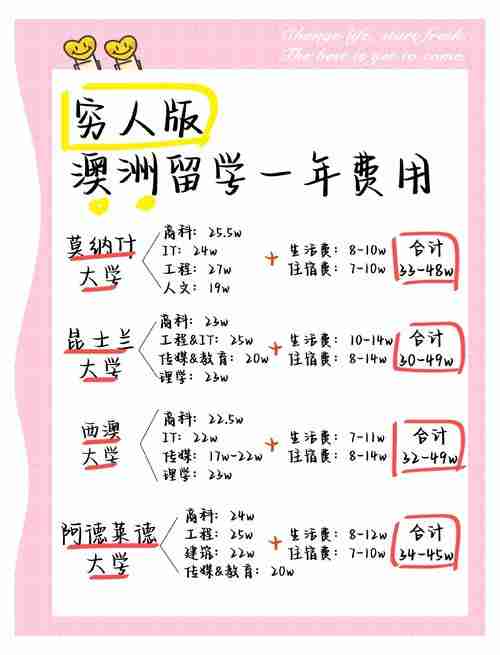 Change life, start fresh.
The best is yet to come.
穷人版
澳洲留学一年费用
莫纳什
大学
商科：25.5w
IT：24w
工程：27w
人文：19w
+
生活费：8-10w
住宿费：7-10w
合计
33-48w
昆士兰
大学
商科：23w
工程&IT：25w
传媒&教育：20w
理学：23w
+
生活费：10-14w
住宿费：8-14w
合计
30-49w
西澳
大学
商科：22.5w
IT：22w
传媒：17w-22w
理学：23w
+
生活费：7-11w
住宿费：8-14w
合计
32-49w
阿德莱德
大学
商科：24w
工程：25w
建筑：22w
传媒&教育：20w
+
生活费：8-12w
住宿费：7-10w
合计
34-45w